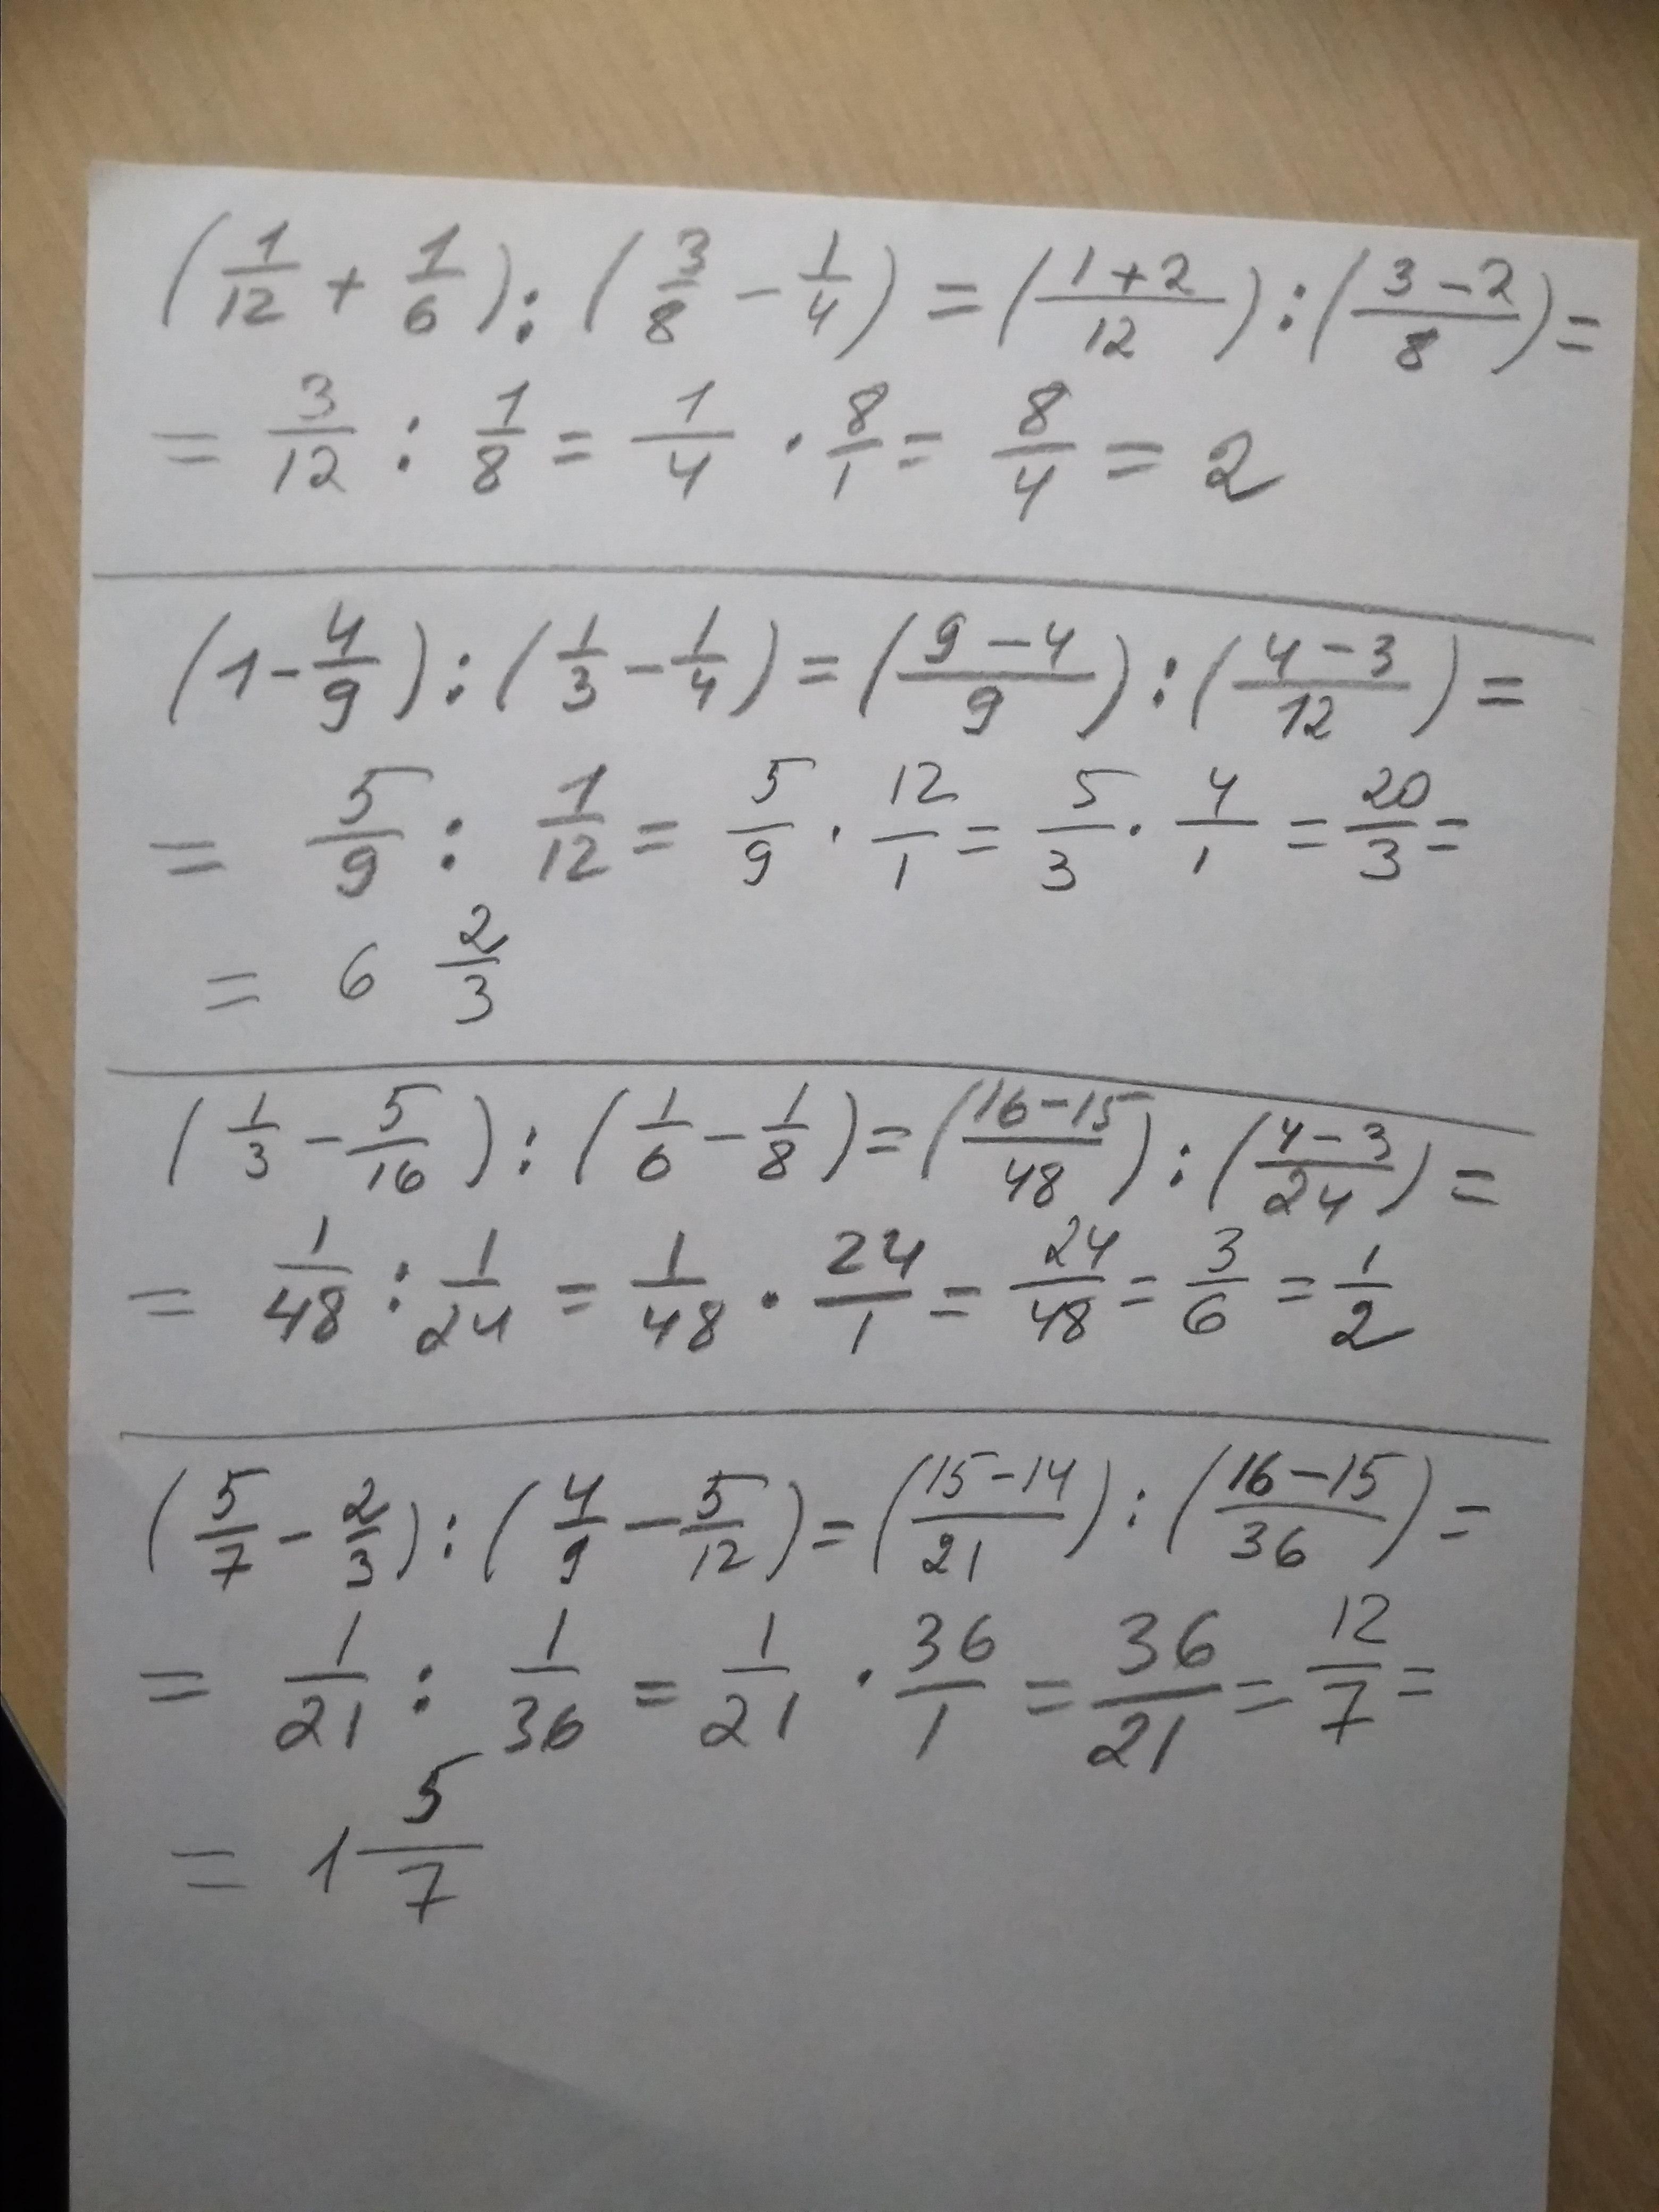 (1/12 + 1/6) : (3/8 - 1/4) = ((1+2)/12) : ((3-2)/8) =
= 3/12 : 1/8 = 1/4 · 8/1 = 8/4 = 2
(1 - 4/9) : (1/3 - 1/4) = ((9-4)/9) : ((4-3)/12) =
= 5/9 : 1/12 = 5/9 · 12/1 = 5/3 · 4/1 = 20/3 =
= 6 2/3
(1/3 - 5/16) : (1/6 - 1/8) = ((16-15)/48) : ((4-3)/24) =
= 1/48 : 1/24 = 1/48 · 24/1 = 24/48 = 3/6 = 1/2
(5/7 - 2/3) : (4/9 - 5/12) = ((15-14)/21) : ((16-15)/36) =
= 1/21 : 1/36 = 1/21 · 36/1 = 36/21 = 12/7 =
= 1 5/7